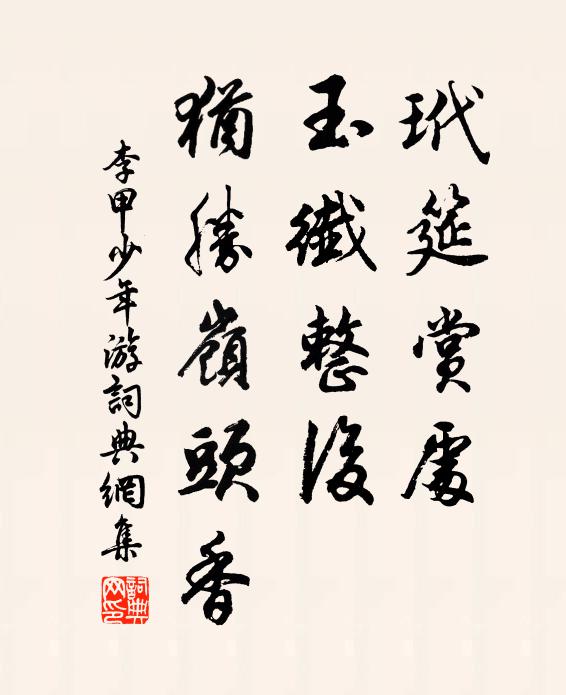 玳筵賞處
玉纖整後
猶勝嶺頭香
李甲少年游詞典網集
詞典
网印